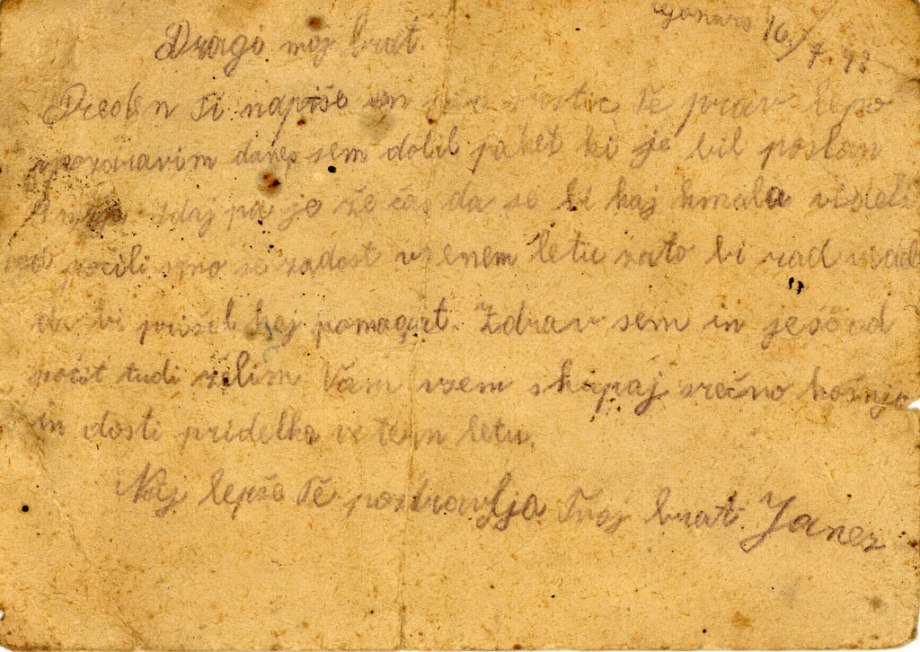 Gonars 16/7.42
Dragi moj brat.
Preden Ti napiše en par vrstic Te prav lepo
pozdravim danes sem dobil paket ki je bil poslan
maja. Zdaj pa je že čas da se bi kaj kmalu videli
počili smo se zadost v enem letu zato bi rad
da bi prišel kaj pomagat. Zdrav sem in ješč od
počit tudi želim Vam vsem skupaj srečno košnjo
in dosti pridelka v tem letu.
Naj lepše Te pozdravlja Tvoj brat Janez